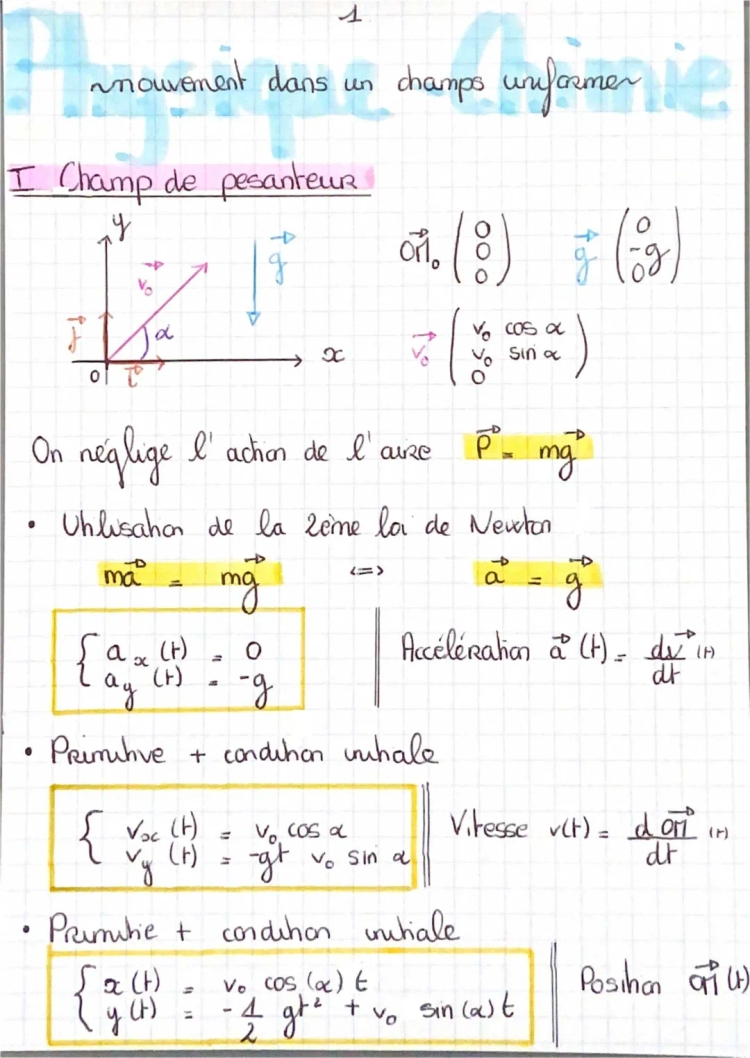 1
Physique Chimie
mouvement dans un champs uniforme
I Champ de pesanteur
y
v₀→ g→ OM₀→ (0 0 0) g→ (0 -g 0)
j→ α
0 i→ x v₀→ (v₀ cos α v₀ sin α 0)
On néglige l'action de l'aire P→ = mg→
• Utilisation de la 2ème loi de Newton
ma→ = mg→ <=> a→ = g→
{ aₓ(t) = 0
a_y(t) = -g
Accélération a→(t) = dv→/dt (t)
• Primitive + condition initiale
{ vₓ(t) = v₀ cos α
v_y(t) = -gt v₀ sin α
Vitesse v(t) = d OM→/dt (t)
• Primitie + condition initiale
{ x(t) = v₀ cos(α) t
y(t) = -1/2 gt² + v₀ sin(α) t
Position OM→(t)